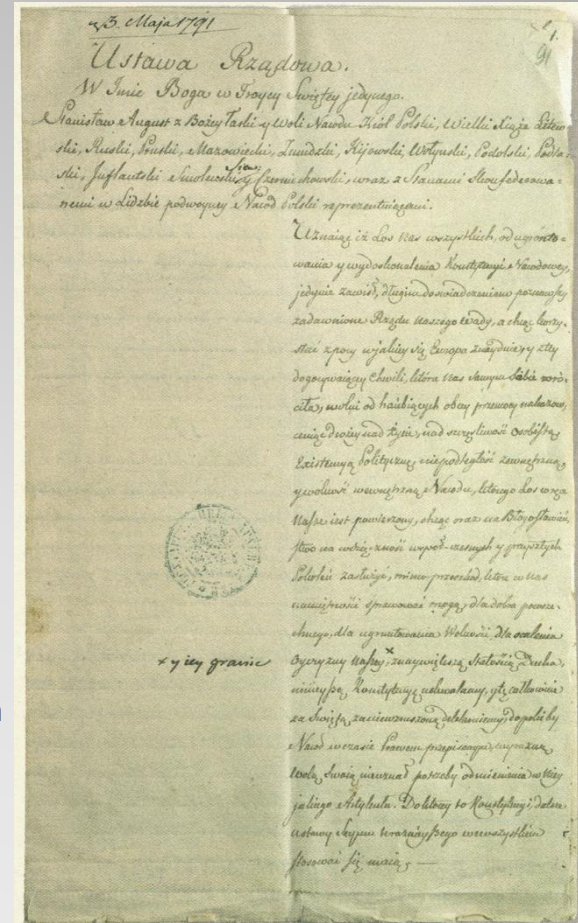 3. Maja 1791
1.
91
Ustawa Rządowa.
W Imie Boga w Troycy Swiętey jedynego.
Stanisław August z Bożey łaski y Woli Narodu Król Polski, Wielki Xiąże Litew-
ski, Ruski, Pruski, Mazowiecki, Żmudzki, Kijowski, Wołynski, Podolski, Podla-
ski, Inflantski Smolenski, y Czerniechowski, wraz z Stanami Skonfederowa-
nemi w Liczbie podwoyney Naród Polski reprezentuiącemi.
Uznaiąc iż Los nas wszystkich, od ugrónto-
wania y wydoskonalenia Konstytucyi Narodowey,
jedynie zawisł, długim doświadczeniem poznawszy
zadawnione Rządu naszego wady, a chcąc korzy-
stać z pory w jakiey się Europa znayduie, y z tey
dogorywaiącey chwili, która nas samym sobie wró-
ciła, wolni od hańbiących obcey przemocy nakazow,
ceniąc drożey nad życie, nad szczęśliwość osobistą
Existencyą Polityczną, niepodległość zewnętrzną
y wolność wewnętrzną Narodu, ktorego Los w ręce
nasze iest powierzony, chcąc oraz na Błogosławień-
stwo na wdzięczność współczesnych y przyszłych
Pokoleń zasłużyć, mimo przeszkod, które w nas
namiętności sprawować mogą, dla dobra powsze-
chnego, dla ugruntowania Wolności, dla ocalenia
x y iey granic
Oyczyzny naszey, x z naywiększą stałością Ducha,
ninieyszą Konstytucyę uchwalamy, y tę całkowicie
za Swiętą, za niewzruszoną deklaruiemy, dopókiby
Naród w czasie Prawem przepisanym, wyraźną
Wolą Swoią nieuznał potrzeby odmienienia w Niey
jakiego Artykułu. Do ktorey to Konstytucyi, dalsze
ustawy Seymu teraźnieyszego we wszystkim
stosować się maią. —